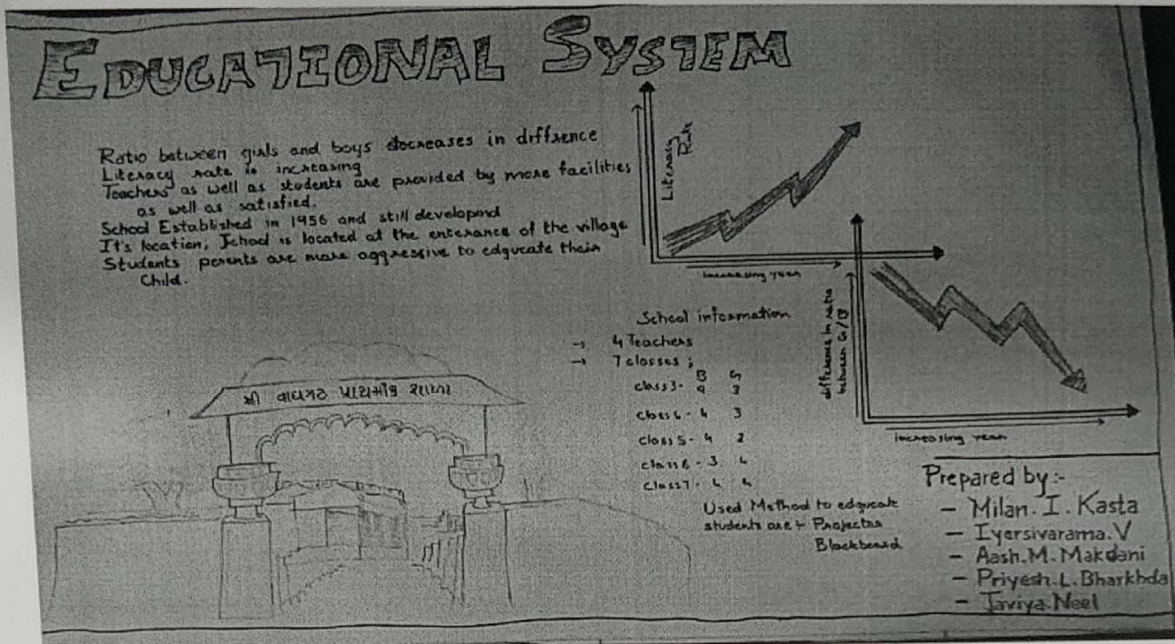 EDUCATIONAL SYSTEM
Ratio between girls and boys decreases in diffrence
Literacy rate is increasing
Teachers as well as students are provided by more facilities
as well as satisfied.
School Established in 1956 and still developend
It's location; School is located at the enterance of the village
Students perents are more aggressive to edgucate their
Child.
Literacy Rate
increasing year
difference in ratio
between G/B
increasing year
School information
→ 4 Teachers
→ 7 classes ;
B G
class3- 9 3
class4- 4 3
class5- 4 2
class6- 3 4
class7- 4 4
Used Method to edgucate
students are :- Projector
Blackboard
શ્રી વાઘગઢ પ્રાથમીક શાળા
Prepared by:-
- Milan. I. Kasta
- Iyersivarama.V
- Aash.M. Makdani
- Priyesh.L.Bharkhda
- Javiya Neel